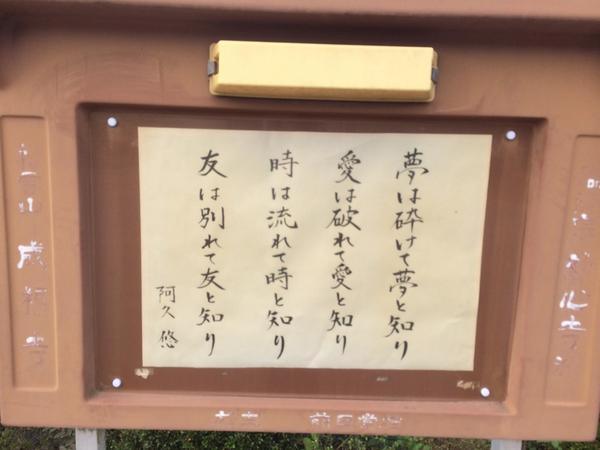 夢は砕けて夢と知り
愛は破れて愛と知り
時は流れて時と知り
友は別れて友と知り
阿久悠